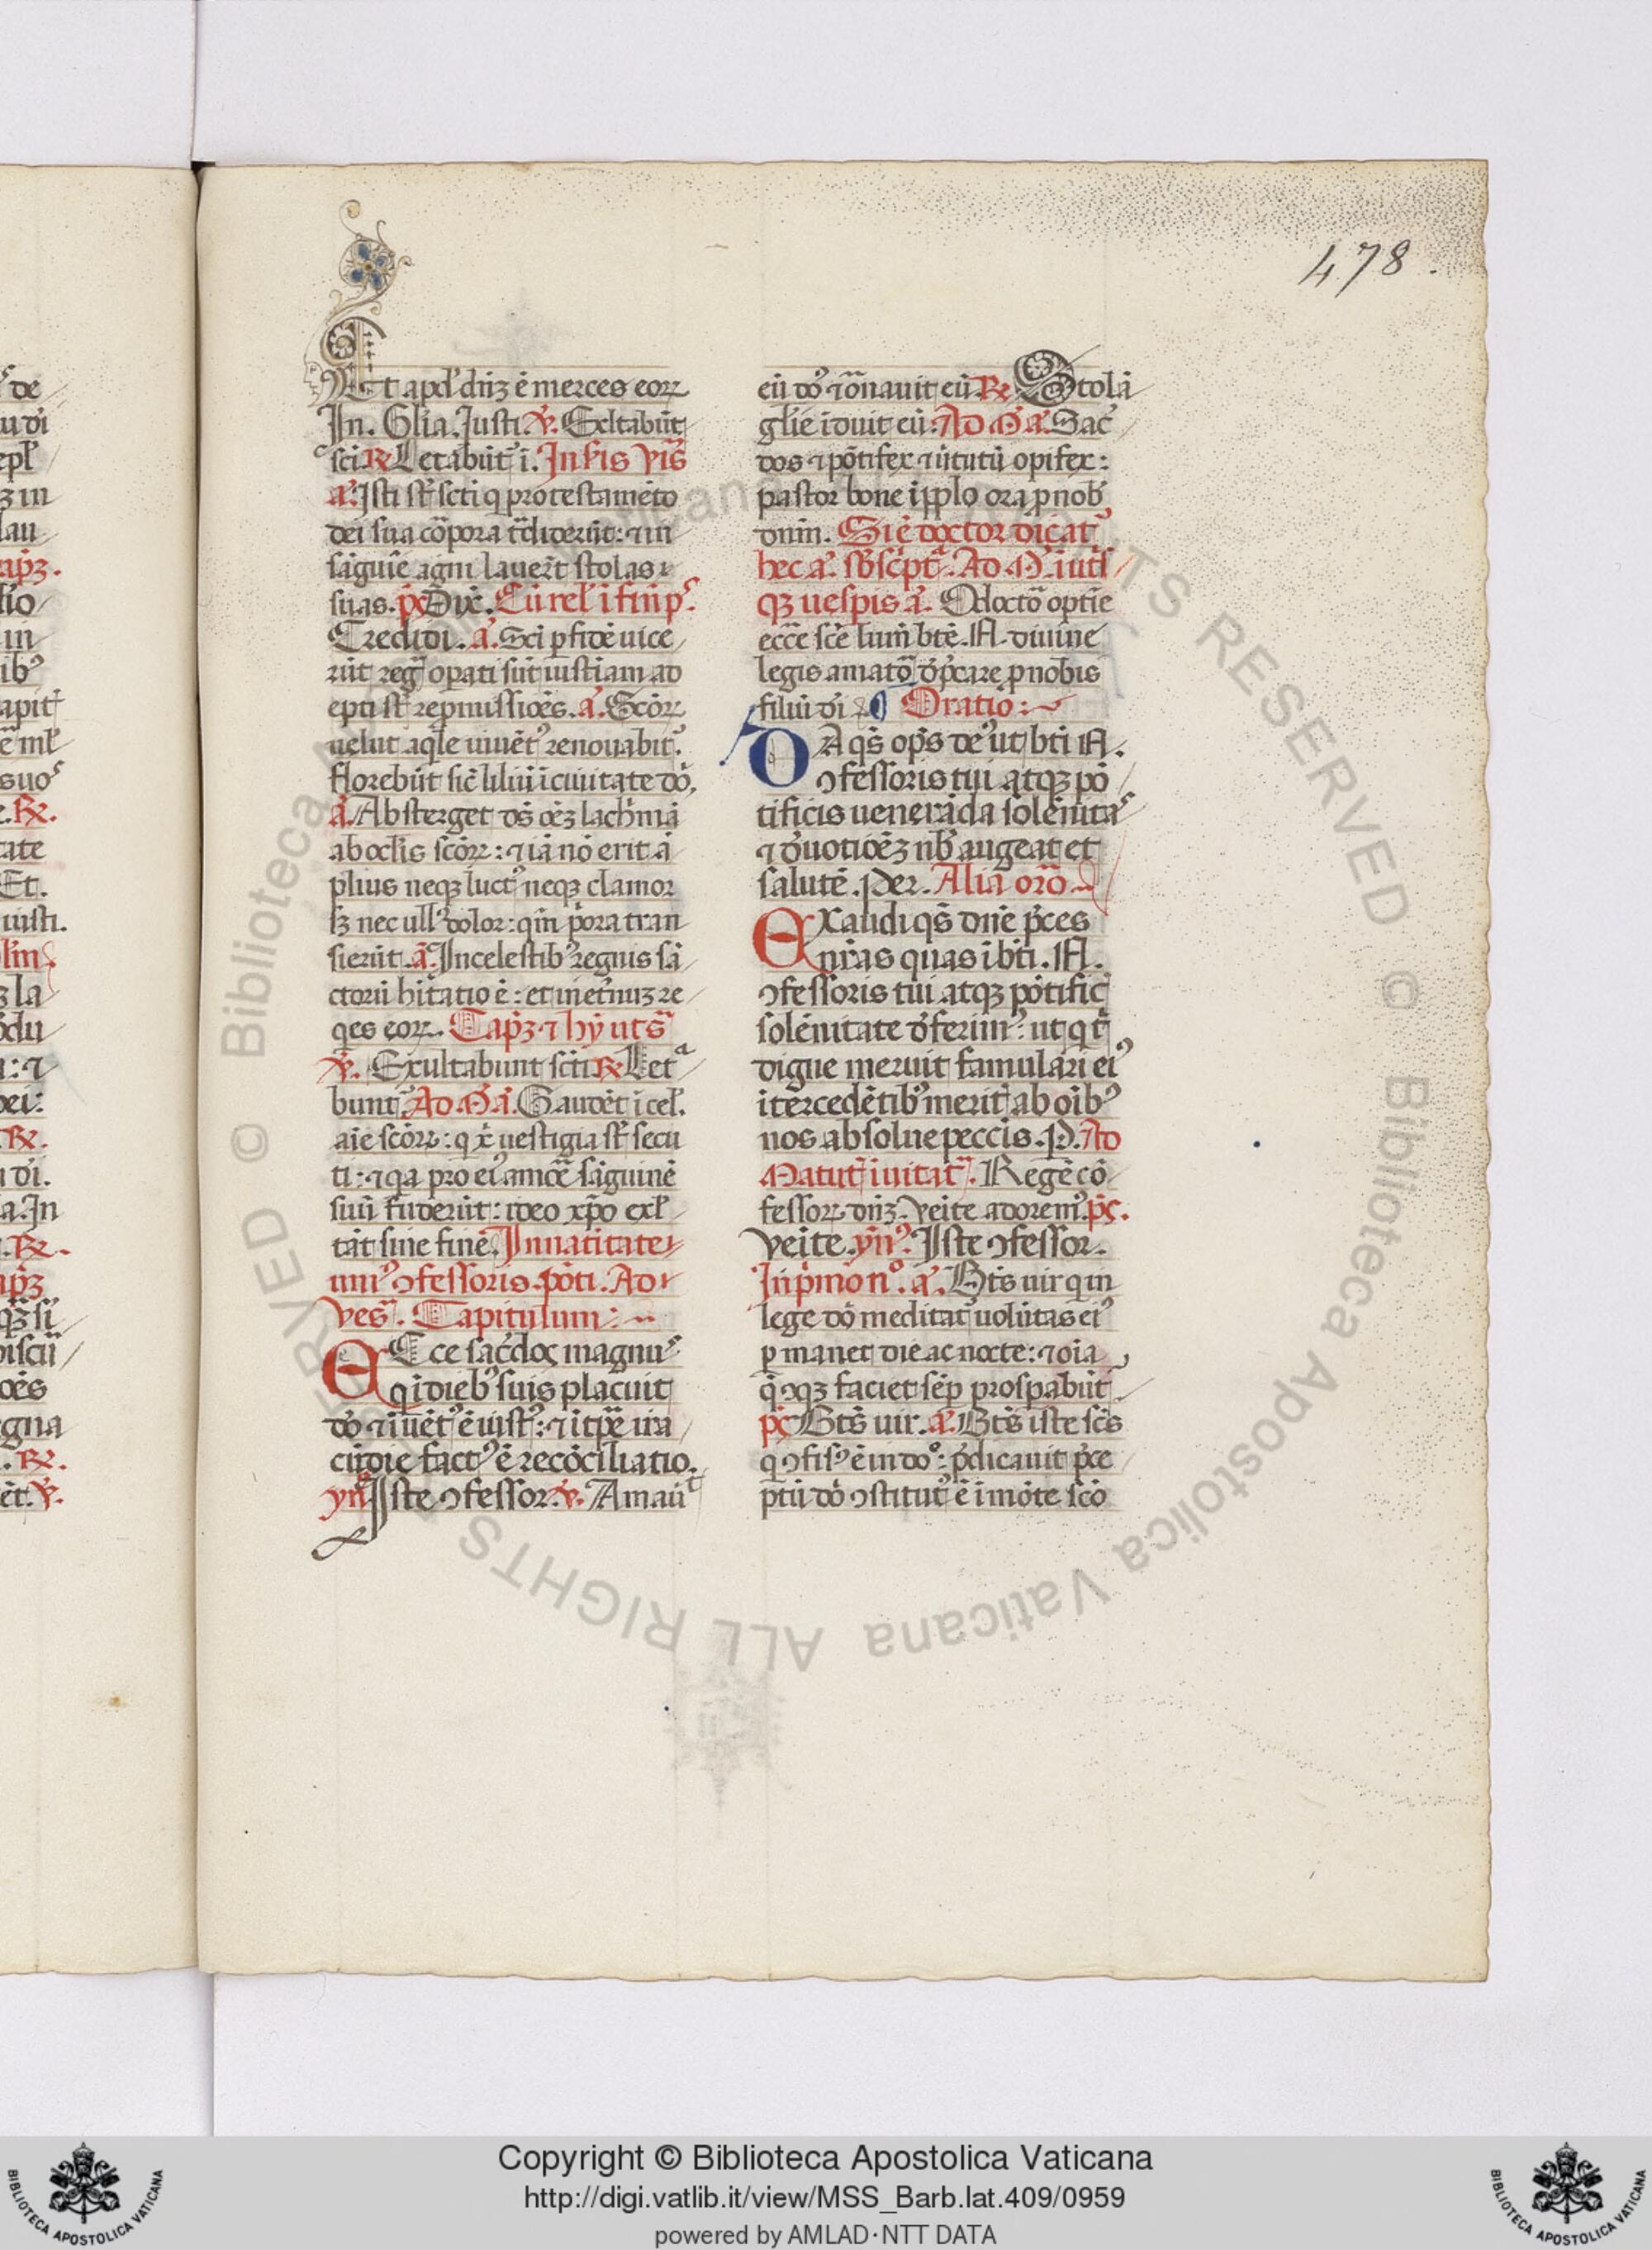 478.
Et apd' dn̄z ē merces eorꝝ
In. Gl̄ia. Iusti. ℣. Exltabūt
sci ℞ Letabūt' ī.
a᷑. Isti st̄ scti q̄ pro testamēto
dei sua cōpora t̄diderūt: ⁊ in
sāguīe agni lauer̄t stolas
suas. ps̄ Dix̄.
Credidi. a᷑. Sci p fidē uice
rūt reg̃ opati sūt iustiam ad
epti st̄ repmissiōes. a᷑. Scōrꝝ
uelut aq̄le uiuēt' renouabit'.
florebūt sic̄ liliū ī ciuitate dō.
a᷑. Absterget ds̄ oēz lachīmā
ab oclis scōrꝝ: ⁊ iā nō erit ā
plius neqꝫ luct' neqꝫ clamor
sꝫ nec ull' dolor: qm̄ p̄ora tran
sierūt. a᷑. In celestib' regnis sā
ctorū hītatio ē: et in et̄nuꝫ re
qes eorꝝ. Capꝫ. ⁊ hȳ ut s̄
℣. Exultabunt scti ℞ Leta
bunt' Ad M̄ a᷑. Gaudēt ī cel'.
aīe scōrꝝ: q x̄ uestigia st̄ secu
ti: ⁊ qa pro ei' amōe sāguinē
suū fuderūt: ideo xp̄o exl'
tāt sine fine. In natitate
uni' ꝯfessoris. pōti. Ad
ves̄. Capitulum:
ECce sac̄dos magnu'
qi dieb' suis placuit
dō ⁊ īuēt' ē iust': ⁊ ī tpe ira
cūdie fact' ē recōciliatio.
yn̄ Iste ꝯfessor. ℣. Amaūt
eū dō' ⁊ ōnauit eū ℞ Stolā
gl̄ie īduit eū. Ad M̄ a᷑. Sac̄
dos ⁊ pōtifex ⁊ ūtutū opifex:
pastor bone ī pplo ora p nob'
dnm̄. Si ē doctor dicat'
hec a᷑. sb̄sc̄pt. Ad M. ī ut̄s
qꝫ uespis a᷑. O docto optīe
ecc̄e sc̄e lum̄ btē. N. diuine
legis amatō dp̄care p nobis
filiū di Oratio:
DA qs̄ ops̄ de' ut bti N.
ꝯfessoris tui atqꝫ pō
tificis uenerāda solēnita'
⁊ d̄uotiōēꝫ nb̄ augeat et
salutē. Per. Alia orō
EXaudi qs̄ dnē p̄ces
nr̄as quas ī bti. N.
ꝯfessoris tui atqꝫ pōtific̄
solēnitate d̄ferim': ut q t̄
digne meruit famulari ei'
ītercedētib' merit' ab oīb'
nos absolue peccīs. P. Ad
Matut' īuitat'. Regē cō
fessorꝝ dn̄ꝫ. Veīte adorem'. ps̄.
Veīte. yn̄'. Iste ꝯfessor.
In p̄mo n°. a᷑. Bts̄ uir q in
lege dō meditat' uolūtas ei'
p manet die ac nocte: ⁊ oīa
q̄ꝯqꝫ faciet sēp prospabūt'.
ps̄ Bts̄ uir. a᷑. Bts̄ iste scs̄
q ꝯfis' ē in do°: p̄dicauit p̄ce
ptū dō ꝯstitut' ē ī mōte scō
Copyright © Biblioteca Apostolica Vaticana
http://digi.vatlib.it/view/MSS_Barb.lat.409/0959
powered by AMLAD·NTT DATA
© Biblioteca Apostolica Vaticana ALL RIGHTS RESERVED
BIBLIOTECA APOSTOLICA VATICANA
BIBLIOTECA APOSTOLICA VATICANA